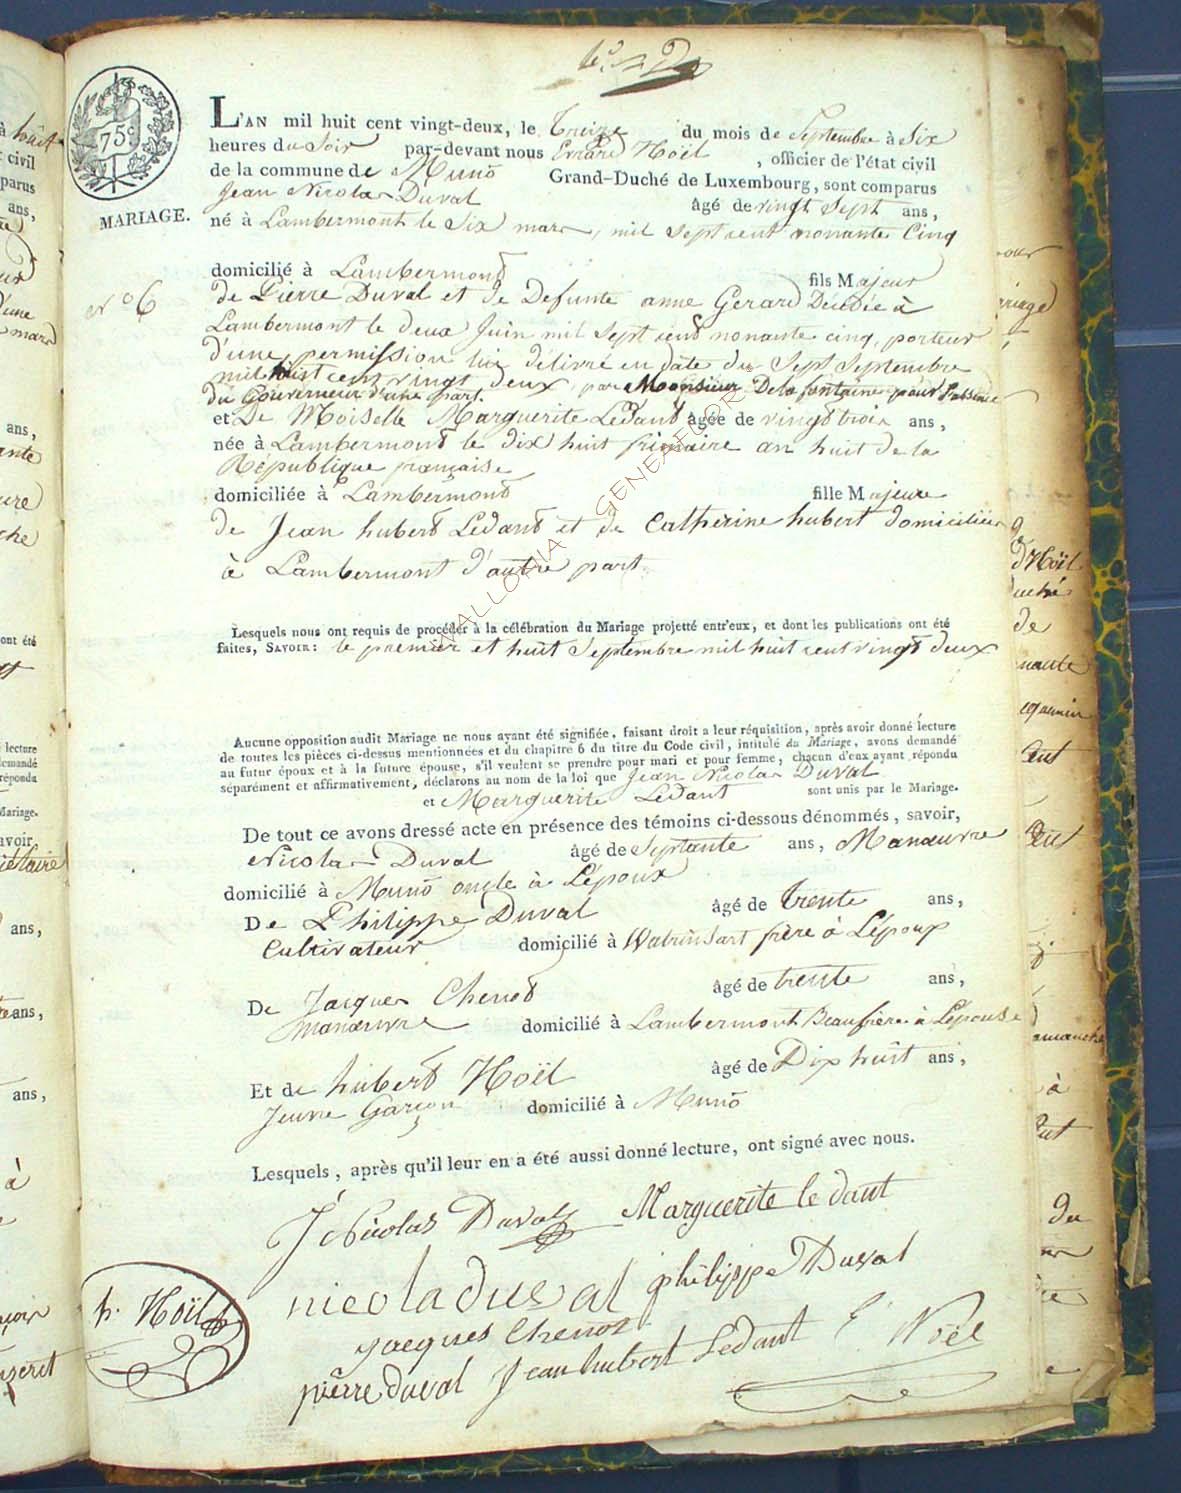 75c
MARIAGE.
L'AN mil huit cent vingt-deux, le Treize du mois de Septembre à Six
heures du Soir par-devant nous Errard Noël, officier de l'état civil
de la commune de Muno Grand-Duché de Luxembourg, sont comparus
Jean Nicolas Duval âgé de vingt Sept ans,
né à Lambermont le Six mars, mil Sept cent nonante Cinq
domicilié à Lambermont fils Majeur
N° 6
de Pierre Duval et de Defunte anne Gerard Décédée à
Lambermont le deux Juin mil Sept cent nonante cinq, porteur
d'une permission lui délivré en date du Sept Septembre
mil huit cent vingt deux par Monsieur Delafontaine pour l'absence
du Gouverneur d'une part.
et De Moiselle Marguerite Ledant âgée de vingt trois ans,
née à Lambermont le dix huit frimaire an huit de la
République française
domiciliée à Lambermont fille Majeure
de Jean hubert Ledant et de Catherine hubert domiciliés
à Lambermont d'autre part
Lesquels nous ont requis de procéder à la célébration du Mariage projetté entr'eux, et dont les publications ont été
faites, SAVOIR: le premier et huit Septembre mil huit cent vingt deux
Aucune opposition audit Mariage ne nous ayant été signifiée, faisant droit a leur réquisition, après avoir donné lecture
de toutes les pièces ci-dessus mentionnées et du chapitre 6 du titre du Code civil, intitulé du Mariage, avons demandé
au futur époux et à la future épouse, s'il veulent se prendre pour mari et pour femme, chacun d'eux ayant répondu
séparément et affirmativement, déclarons au nom de la loi que Jean Nicolas Duval
et Marguerite Ledant sont unis par le Mariage.
De tout ce avons dressé acte en présence des témoins ci-dessous dénommés, savoir,
Nicolas Duval âgé de Septante ans, Manœuvre
domicilié à Muno oncle à L'époux
De Philippe Duval âgé de trente ans,
Cultivateur domicilié à Watrinsart frère à L'époux
De Jacques Chenot âgé de trente ans,
manœuvre domicilié à Lambermont Beaufrère à L'épouse
Et de hubert Noël âgé de Dix huit ans,
Jeune Garçon domicilié à Muno
Lesquels, après qu'il leur en a été aussi donné lecture, ont signé avec nous.
J Nicolas Duval Marguerite le dant
nicola duval philippe Duval
h. Noël
jacques Chenot
pierre duval Jean hubert Ledant E Noël
WALLONIA GENEAFLOR